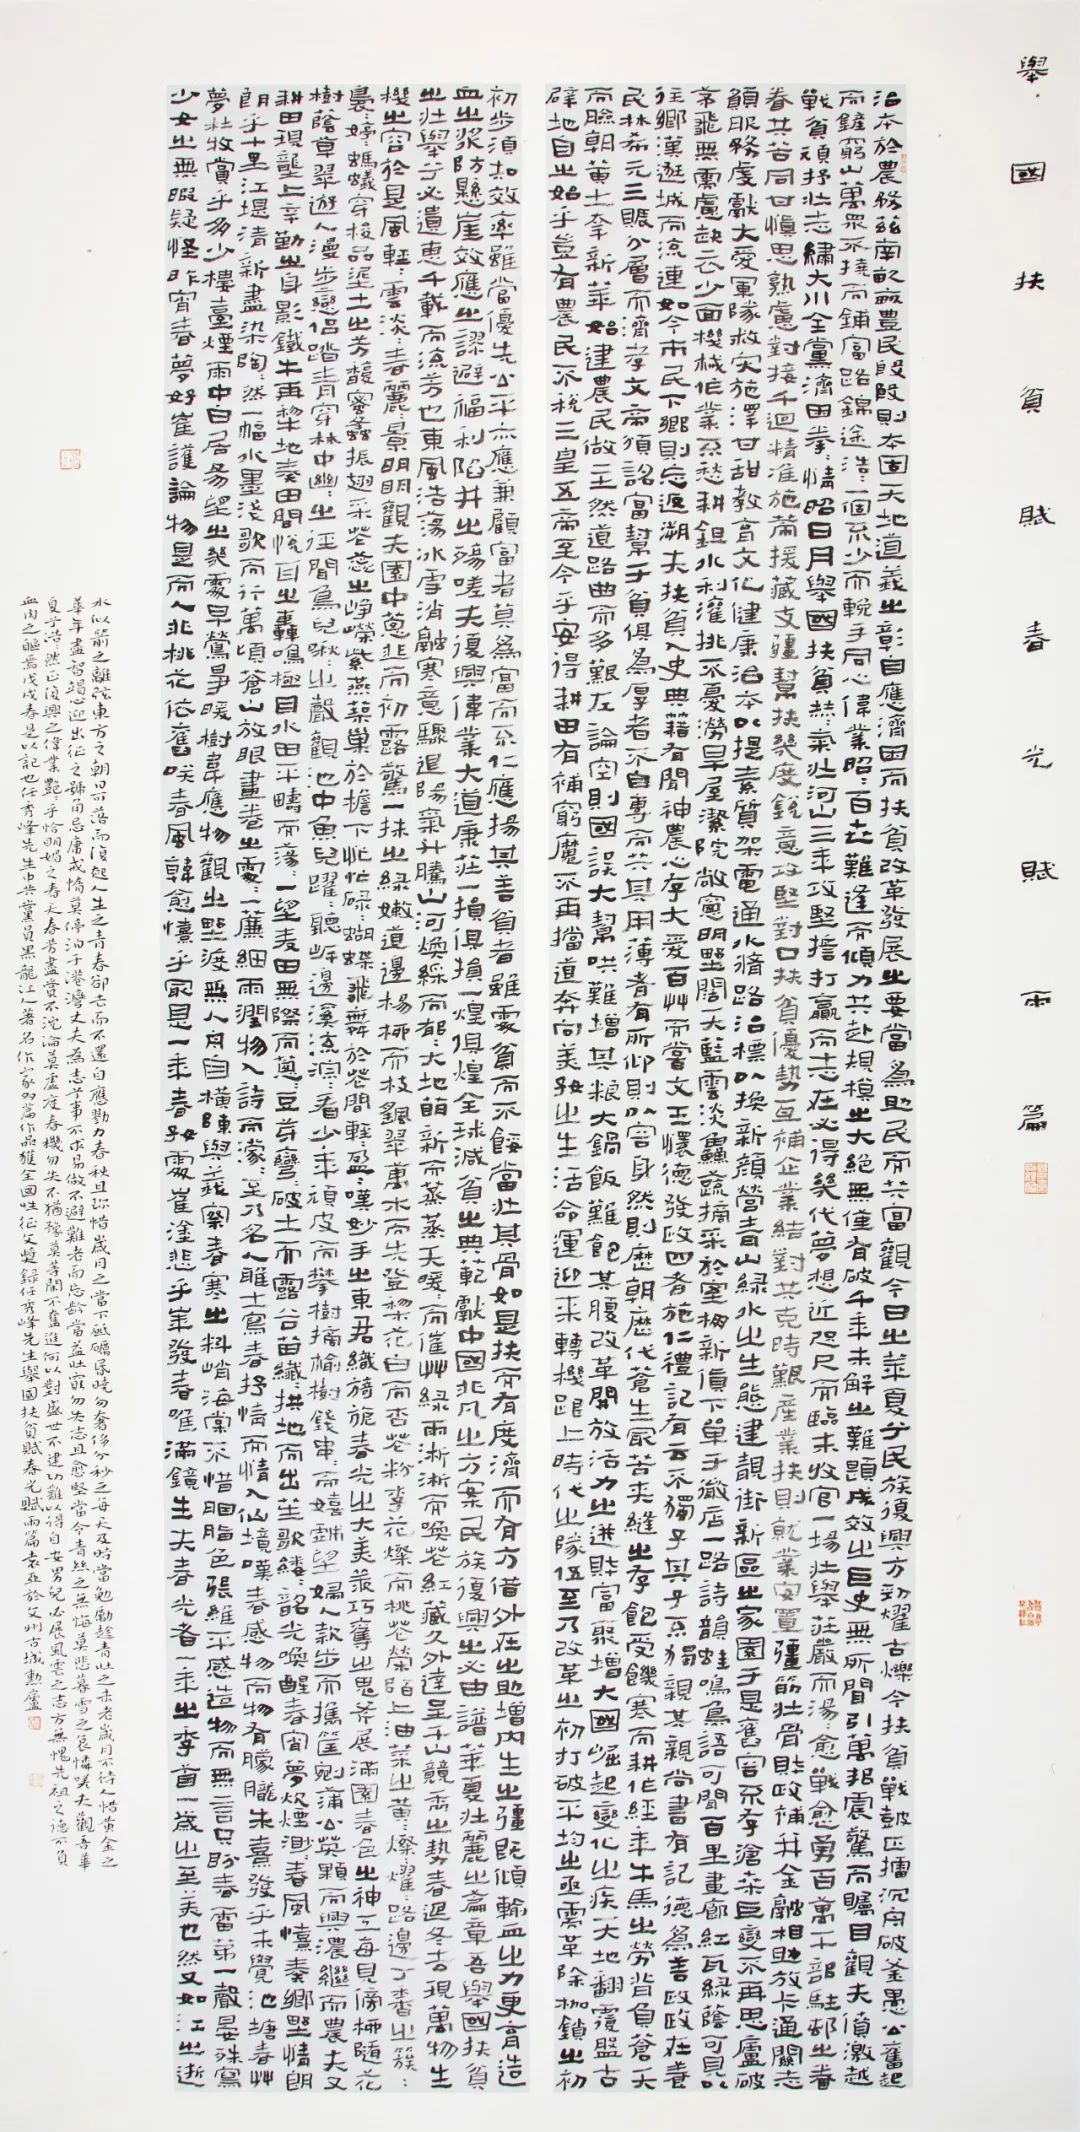 舉國扶貧賦春光賦兩篇
治本於農務茲南畝畝豊民殷殷則本固天地道義之彰自應濟困而扶貧改革發展之要當為助民而共富觀今日之華夏兮民族復興方劲耀古爍今扶貧戰鼓匹擂沉舟破釜愚公奮起
而鏟窮山萬眾不撓而鋪富路錦途浩〻一個不少而輓手同心偉業昭〻百年難逢而傾力共赴規模之大絕無僅有破千年未解之難題成效之巨史無所聞引萬邦震驚而矚目觀夫激越
戰貧頑抒壯志繡大川全黨濟困拳〻情昭日月舉國扶貧烝〻氣壯河山三年攻堅擔打贏而志在必得幾代夢想近咫尺而臨未收官一場壯舉莊嚴而湯〻愈戰愈勇百萬干部駐邨之眷
眷共苦同甘慎思熟慮對接千迴精准施策援藏支疆幫扶幾度銳意攻堅對口扶貧優勢互補企業結對共克時艱產業扶則就業安置彊筋壯骨財政補并金融相助放卡通關志
願服務虔獻大愛軍隊救灾施澤甘甜教育文化健康治本以提素質架電通水脩路治標以換新顏營青山綠水之生態建靚街新區之家園于是舊容不存滄桑巨變不再思廬破
常飛無需慮缺衣少面機械作業不愁耕鉏水利灌排不憂澇旱屋潔院敞窻明墅闊天藍雲淡魚蔬摘采於室棚新貨下單于徽店一路詩韻蛙鳴鳥語可聞百里畫廊紅瓦綠蔭可見以
往鄉漢逛城而流連如今市民下鄉則忘返溯夫扶貧入史典藉有聞神農心存大愛百艸而嘗文王懷德發政四者施仁禮記有云不獨子其子不獨親其親尚書有記德為善政政在養
民林希元三賑分層而濟孝文帝須詔富幫于貧俱為厚者不自專而共其用薄者有所仰則以容身然則歷朝歷代蒼生冣苦夾縫之存飽受饑寒而耕作經年牛馬之勞背負蒼天
而臉朝黃土奉新華始建農民做主然道路曲而多艱左論空則國誤大幫哄難增其粮大鍋飯難飽其腹改革開放活力之迸財富聚增大國崛起變化之疾天地翻覆盤古
辟地自之始乎豈有農民不稅三皇五帝至今乎安得耕田有補窮魔不再擋道奔向美好之生活命運迎來轉機躍上時代之隊伍至乃改革之初打破平均之亟需革除枷鎖之初
初步須知效率雖當優先公平亦應兼顧富者莫為富而不仁應揚其善貧者雖處貧而不餒當壯其骨如是扶而有度濟而有方借外在之助增內生之彊既傾輸血之力更育造
血之漿防懸崖效應之謬避福利陷井之殤嗟夫復興偉業大道康莊一損俱損一煌俱煌全球減貧之典範獻中國非凡之方案民族復興之必由譜華夏壯麗之篇章吾舉國扶貧
之壯舉乎必遺惠千載而流芳也東風浩蕩冰雪消融寒意驟退陽氣升騰山河煥綵而郁〻大地萌新而蒸蒸天暖〻而催艸綠雨淅淅而喚花紅藏久外達呈千山競秀之勢春遲冬去現萬物生
機之容於是風輕〻雲淡〻春麗〻景明明觀夫園中蔥韭而初露驚一抹之綠嫩道邊楊柳而枝飄翠萬木而先登梨花白而杏花粉李花燦而桃花榮陌上油菜之黃〻燦燿〻路邊丁香之簇〻
裊〻婷〻螞蟻穿梭品渥土之芳馥蜜蠭振翅采花蕊之崢嶸紫燕築巢於檐下忙忙碌〻蝴蝶飛舞於花間輕〻盈〻嘆妙手之東君織旖旎春光之大美羨巧奪之鬼斧展滿園春色之神工每見傍柳隨花
樹蔭草翠遊人漫步戀侶踏青穿林中幽〻之徑聞鳥兒啾〻之聲觀池中魚兒躍〻聽岍邊溪流淙〻看少年頑皮而攀樹摘榆樹錢串〻而嬉鬧望婦人款步而攜筐剜蒲公英顆〻而興濃繼而農夫又
耕田現壟上辛勤之身影鐵牛再犂地奏田間悅目之轟鳴極目水田平疇而蕩〻一望麦田無際而蔥〻豆芽彎〻破土而露谷苗纖〻拱地而出笙歌縷〻韶光喚醒春宵夢炊煙渺〻春風憙奏鄉墅情朗
朗乎十里江堤清新盡染陶〻然一幅水墨淺歌而行萬頃蒼山放眼畫卷之處〻一蓆細雨潤物入詩而濛〻至乃名人雎士寫春抒情而情入仙境嘆春感物而物有朦朧朱熹發乎未覺池塘春艸
夢杜牧賞乎多少樓臺煙雨中白居易望之幾處早鶯爭暖樹韋應物觀之墅渡無人舟自橫陳與義察春寒之料峭海棠不惜胭脂色張維平感造物而無言只盼春雷第一聲晏殊寫
少女之無暇疑怪昨宵春夢好崔護論物是而人非桃花依舊咲春風韓愈憙乎冣是一年春好處崔塗悲乎年發春唯滿鏡生夫春光者一年之季首一歲之至美也然又如江之逝
水似箭之離弦東方之朝日可落而復起人生之青春卻去而不還自應勠力春秋且珍惜歲月之當下砥礪昏曉勿奢侈分秒之每天及時當勉勵趁青壯之未老歲月不待人惜黃金之
華年盡智竭心迎出征之號角忌庸戒惰莫停泊于港灣丈夫為志于事不求易做不避難老而忘齡當益壯窮勿失志且愈堅當今青絲之無悔莫悲暮雪之哀憐嘆夫觀吾華
夏兮浩〻然正復興之偉業艷〻乎恰明媚之春天春芳盡賞不沈淪莫虛度春機勿失不猶豫莫等閑不奮進何以對盛世不建功難以得自安男兒必展風雲之志方無愧先祖之德不負
血肉之軀焉戊戌春是以記也任秀峰先生中共黨員黑龍江人著名作家多篇作品獲全國性征文奬錄任秀峰先生舉國扶貧賦春光賦兩篇袁亞於文州古城勲廬